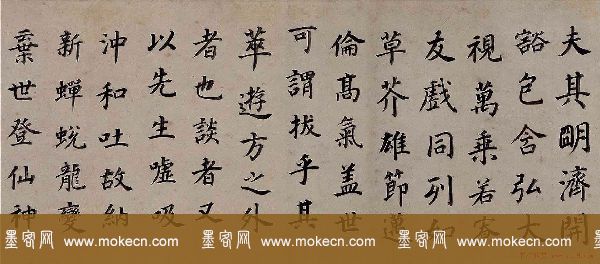 夫其明濟開
豁包含弘大
視萬乘若寮
友戲同列如
草芥雄節邁
倫高氣蓋世
可謂拔乎其
萃遊方之外
者也談者又
以先生噓吸
沖和吐故納
新蟬蛻龍變
棄世登仙神
墨客网 www.mokecn.com 墨客网 www.mokecn.com 墨客网 www.mokecn.com 墨客网